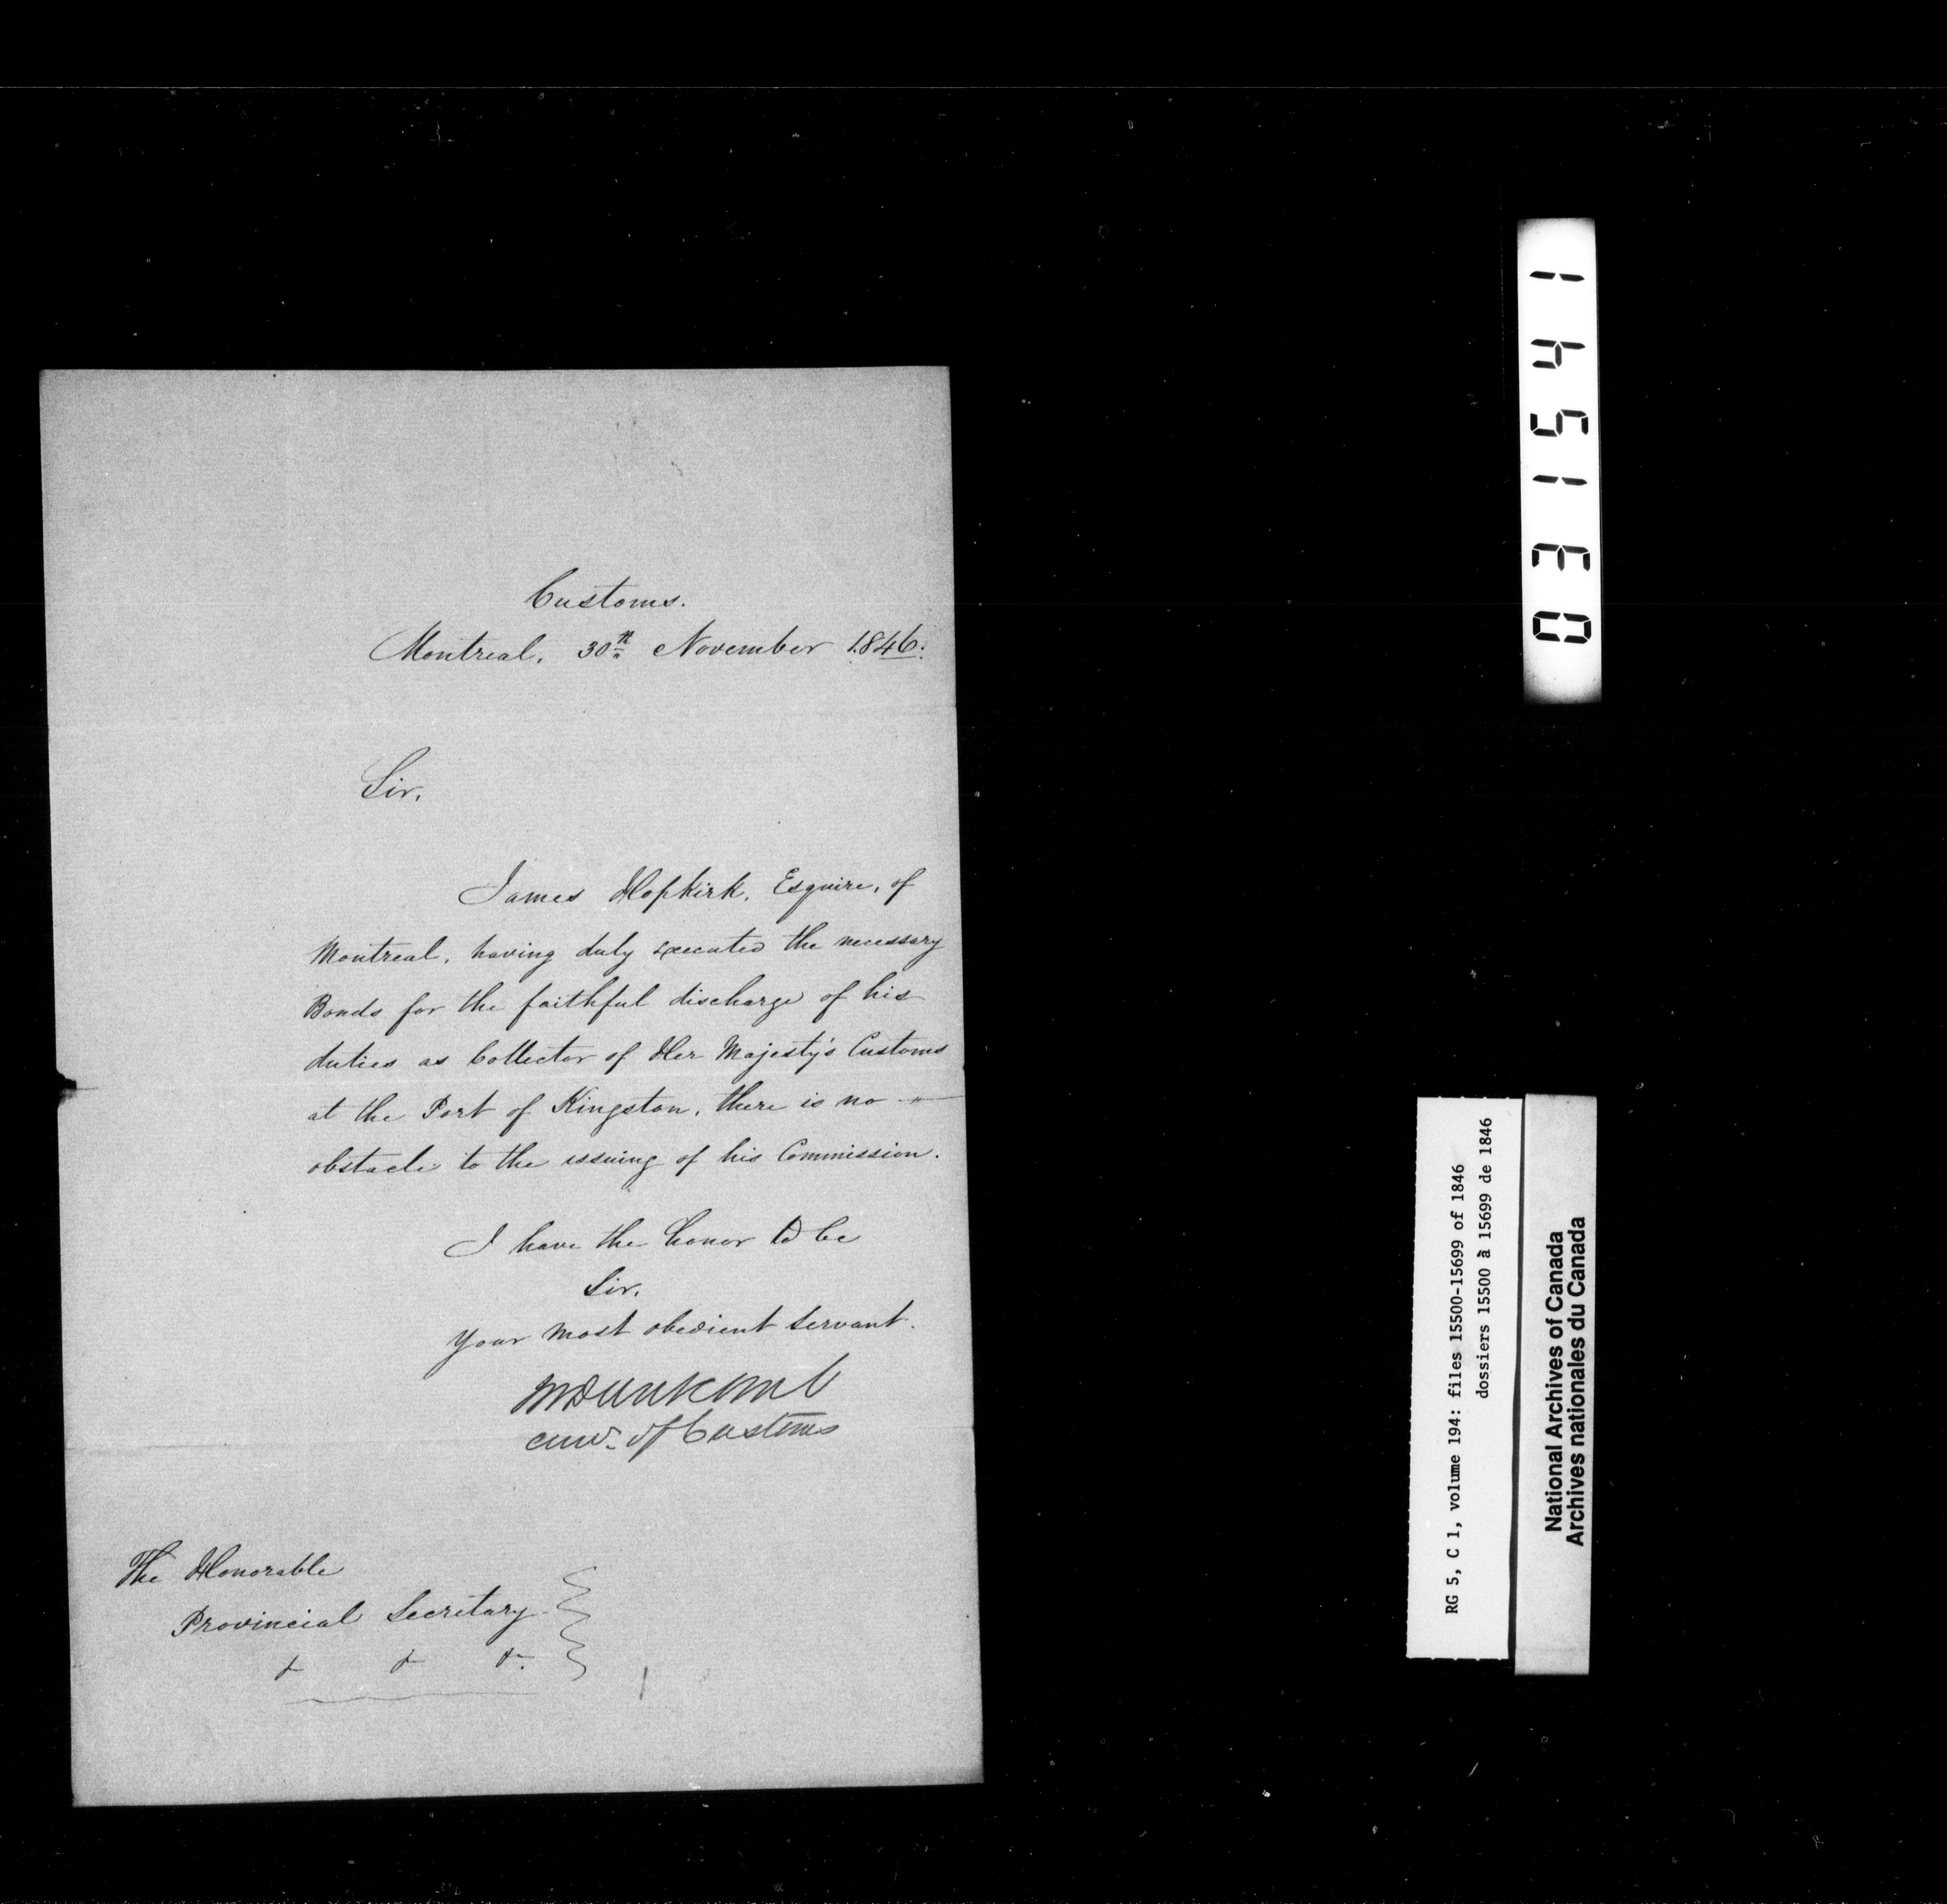 Customs.
Montreal, 30th November 1846.
Sir,
James Hopkirk, Esquire, of
Montreal, having duly executed the necessary
Bonds for the faithful discharge of his
duties as Collector of Her Majesty's Customs
at the Port of Kingston, there is no
obstacle to the issuing of his Commission.
I have the honor to be
Sir,
Your most obedient servant.
of Customs
The Honorable
Provincial Secretary
& & &.
031541
RG 5, C 1, volume 194: files 15500-15699 of 1846
dossiers 15500 à 15699 de 1846
National Archives of Canada
Archives nationales du Canada